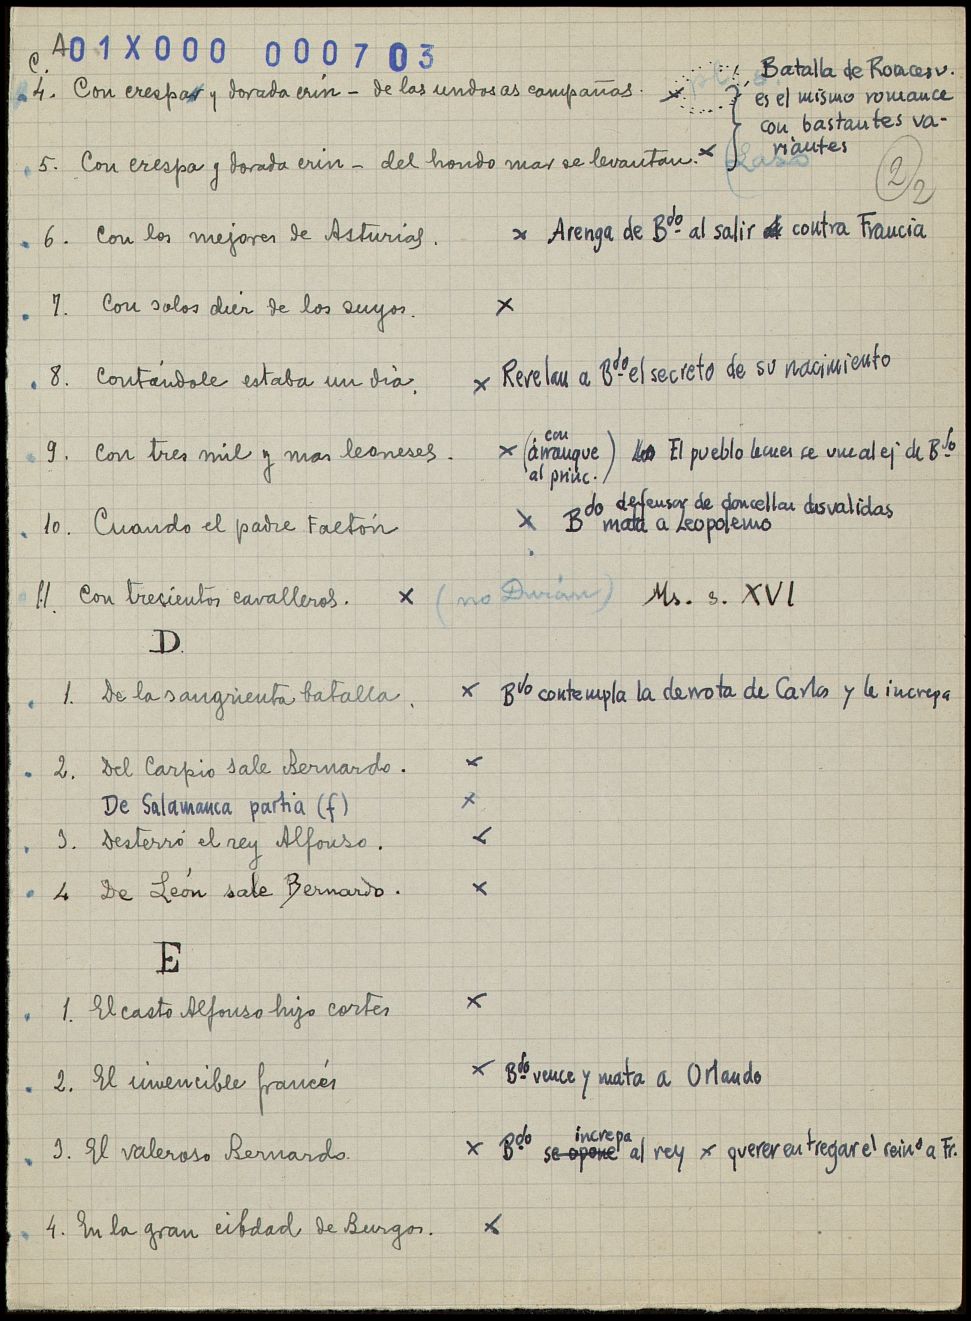 A01X000 000703
C.
4. Con crespa y dorada crin - de las undosas campañas. x
Batalla de Roncesv.
es el mismo romance
con bastantes va-
riantes
5. Con crespa y dorada crin - del hondo mar se levantan. x
2/2
6. Con los mejores de Asturias. x Arenga de Bdo al salir contra Francia
7. Con solos diez de los suyos. x
8. Contándole estaba un dia. x Revelan a Bdo el secreto de su nacimiento
9. Con tres mil y mas leoneses. x (con arranque al princ.) El pueblo leones se une al ej de Bdo
10. Cuando el padre Faetón x Bdo defensor de doncellas desvalidas
mata a Leopolemo
11. Con trecientos cavalleros. x (no Durán) Ms. s. XVI
D
1. De la sangrienta batalla. x Bdo contempla la derrota de Carlos y le increpa
2. Del Carpio sale Bernardo. x
De Salamanca partia (f) x
3. Desterró el rey Alfonso. x
4 De León sale Bernardo. x
E
1. El casto Alfonso hizo cortes x
2. El invencible francés x Bdo vence y mata a Orlando
3. El valeroso Bernardo. x Bdo se opone increpa al rey x querer entregar el reino a Fr.
4. En la gran cibdad de Burgos. x